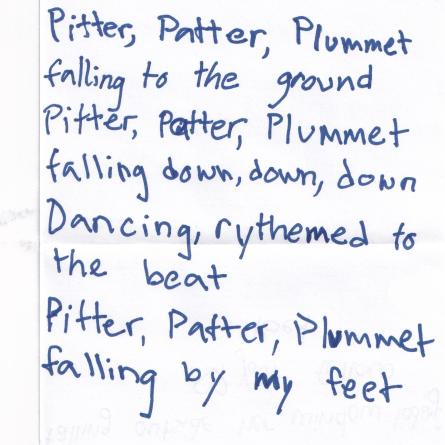 Pitter, Patter, Plummet
falling to the ground
Pitter, Patter, Plummet
falling down, down, down
Dancing, rythemed to
the beat
Pitter, Patter, Plummet
falling by my feet